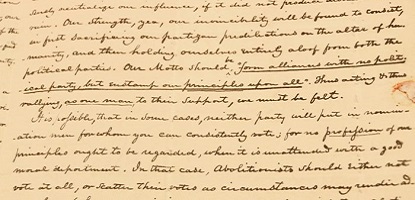 dually neutralize our influence, if it did not produce
ruin. Our strength, yea, our invincibility will be found to consist,
in just sacrificing our partizan predilections on the altar of hu-
manity, and then holding ourselves entirely aloof from both the
political parties. Our Motto should be, "form alliances with no polit-
ical party, but enstamp our principles upon all". Thus acting & thus
rallying, as one man to their support, we must be felt.
It is possible, that in some cases, neither party will put in nomin-
ation men for whom you can consistently vote; for no profession of our
principles ought to be regarded, when it is unattended with a good
moral deportment. In that case, Abolitionists should either not
vote at all, or scatter their votes as circumstances may render ad-